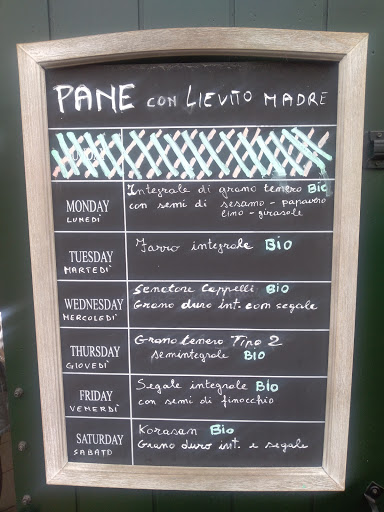 PANE CON LIEVITO MADRE
MONDAY
LUNEDÌ
Integrale di grano tenero BIO
con semi di sesamo - papavero
lino - girasole
TUESDAY
MARTEDÌ
Farro integrale BIO
WEDNESDAY
MERCOLEDÌ
Senatore Cappelli BIO
Grano duro int. con segale
THURSDAY
GIOVEDÌ
Grano tenero Tipo 2
semintegrale BIO
FRIDAY
VENERDÌ
Segale integrale BIO
con semi di finocchio
SATURDAY
SABATO
Korasan BIO
Grano duro int. e segale